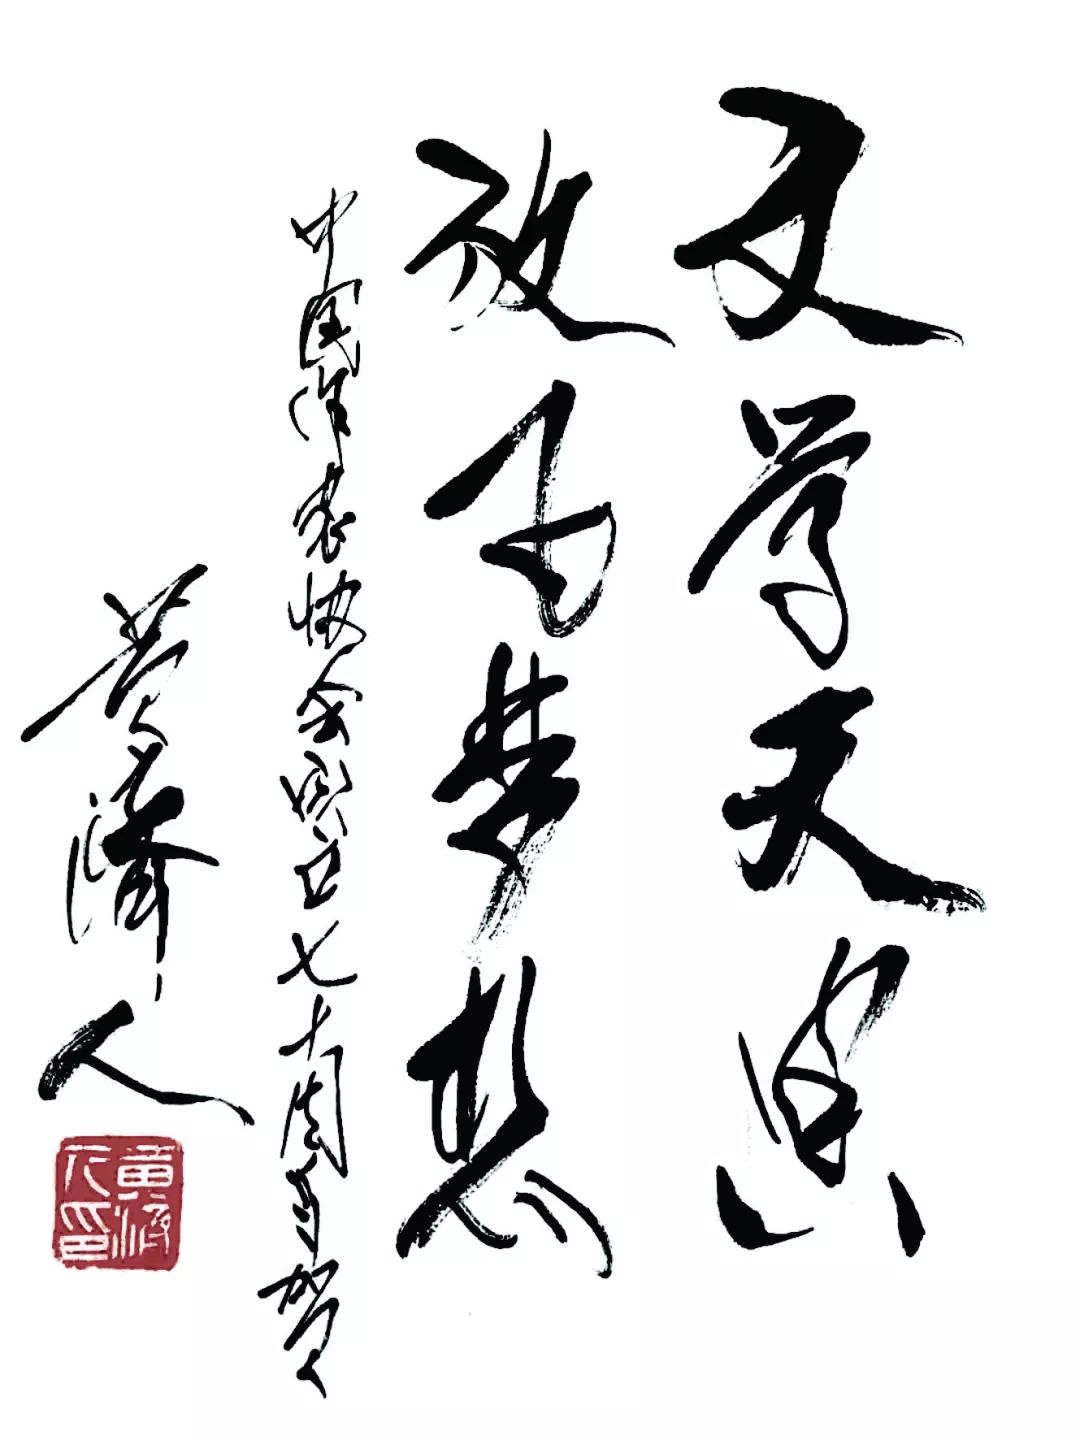 文学天空
放飞梦想
中国作家协会成立七十周年贺
黄济人
黄济人印